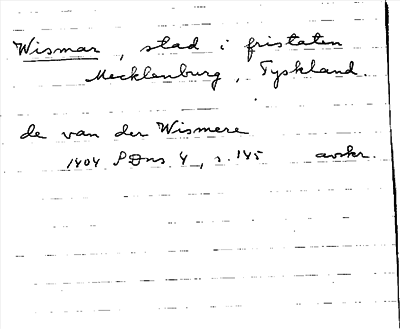 Wismar, stad i fristaten
Mecklenburg, Tyskland.
de van der Wismere
1404 SDns 4, s. 145 avskr.